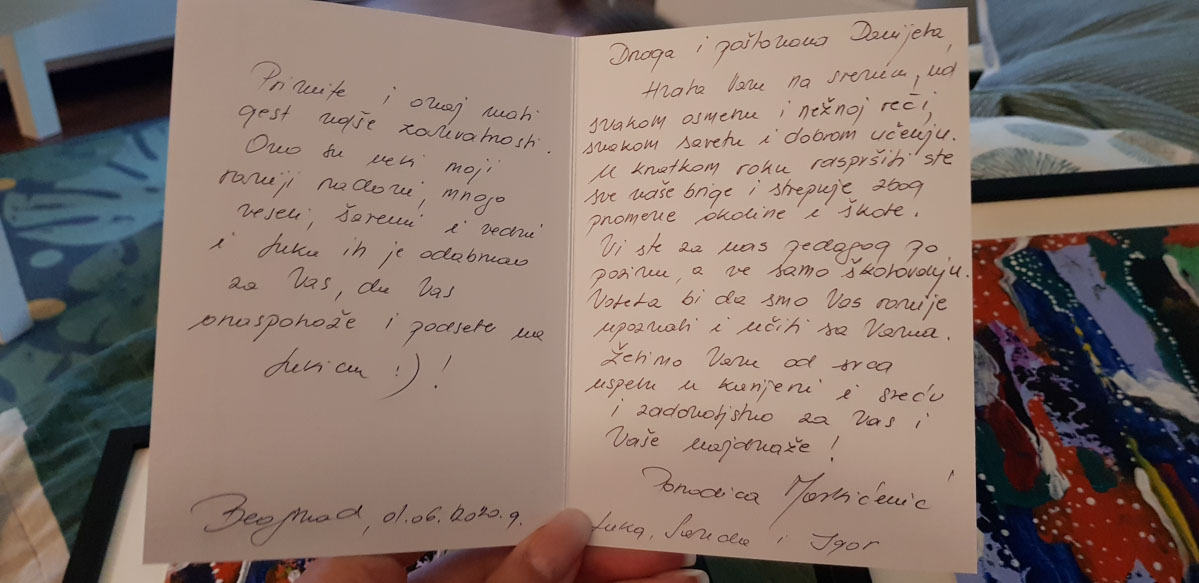 Primite i ovaj mali
gest naše zahvalnosti.
Ovo su neki moji
raniji radovi, mnogo
veseli, šareni i vedri
i Luka ih je odabrao
za Vas, da Vas
oraspolože i podsete na
Lukicu :) !
Beograd, 01.06.2020.g.
Draga i poštovana Danijela,
Hvala Vam na svemu, na
svakom osmehu i nežnoj reči,
svakom savetu i dobrom učenju.
U kratkom roku raspršili ste
sve naše brige i strepnje zbog
promene okoline i škole.
Vi ste za nas pedagog po
pozivu, a ne samo školovanju.
Volela bi da smo Vas ranije
upoznali i učili sa Vama.
Želimo Vam od srca
uspeh u karijeri i sreću
i zadovoljstvo za Vas i
Vaše najdraže!
Porodica
Luka, i Igor